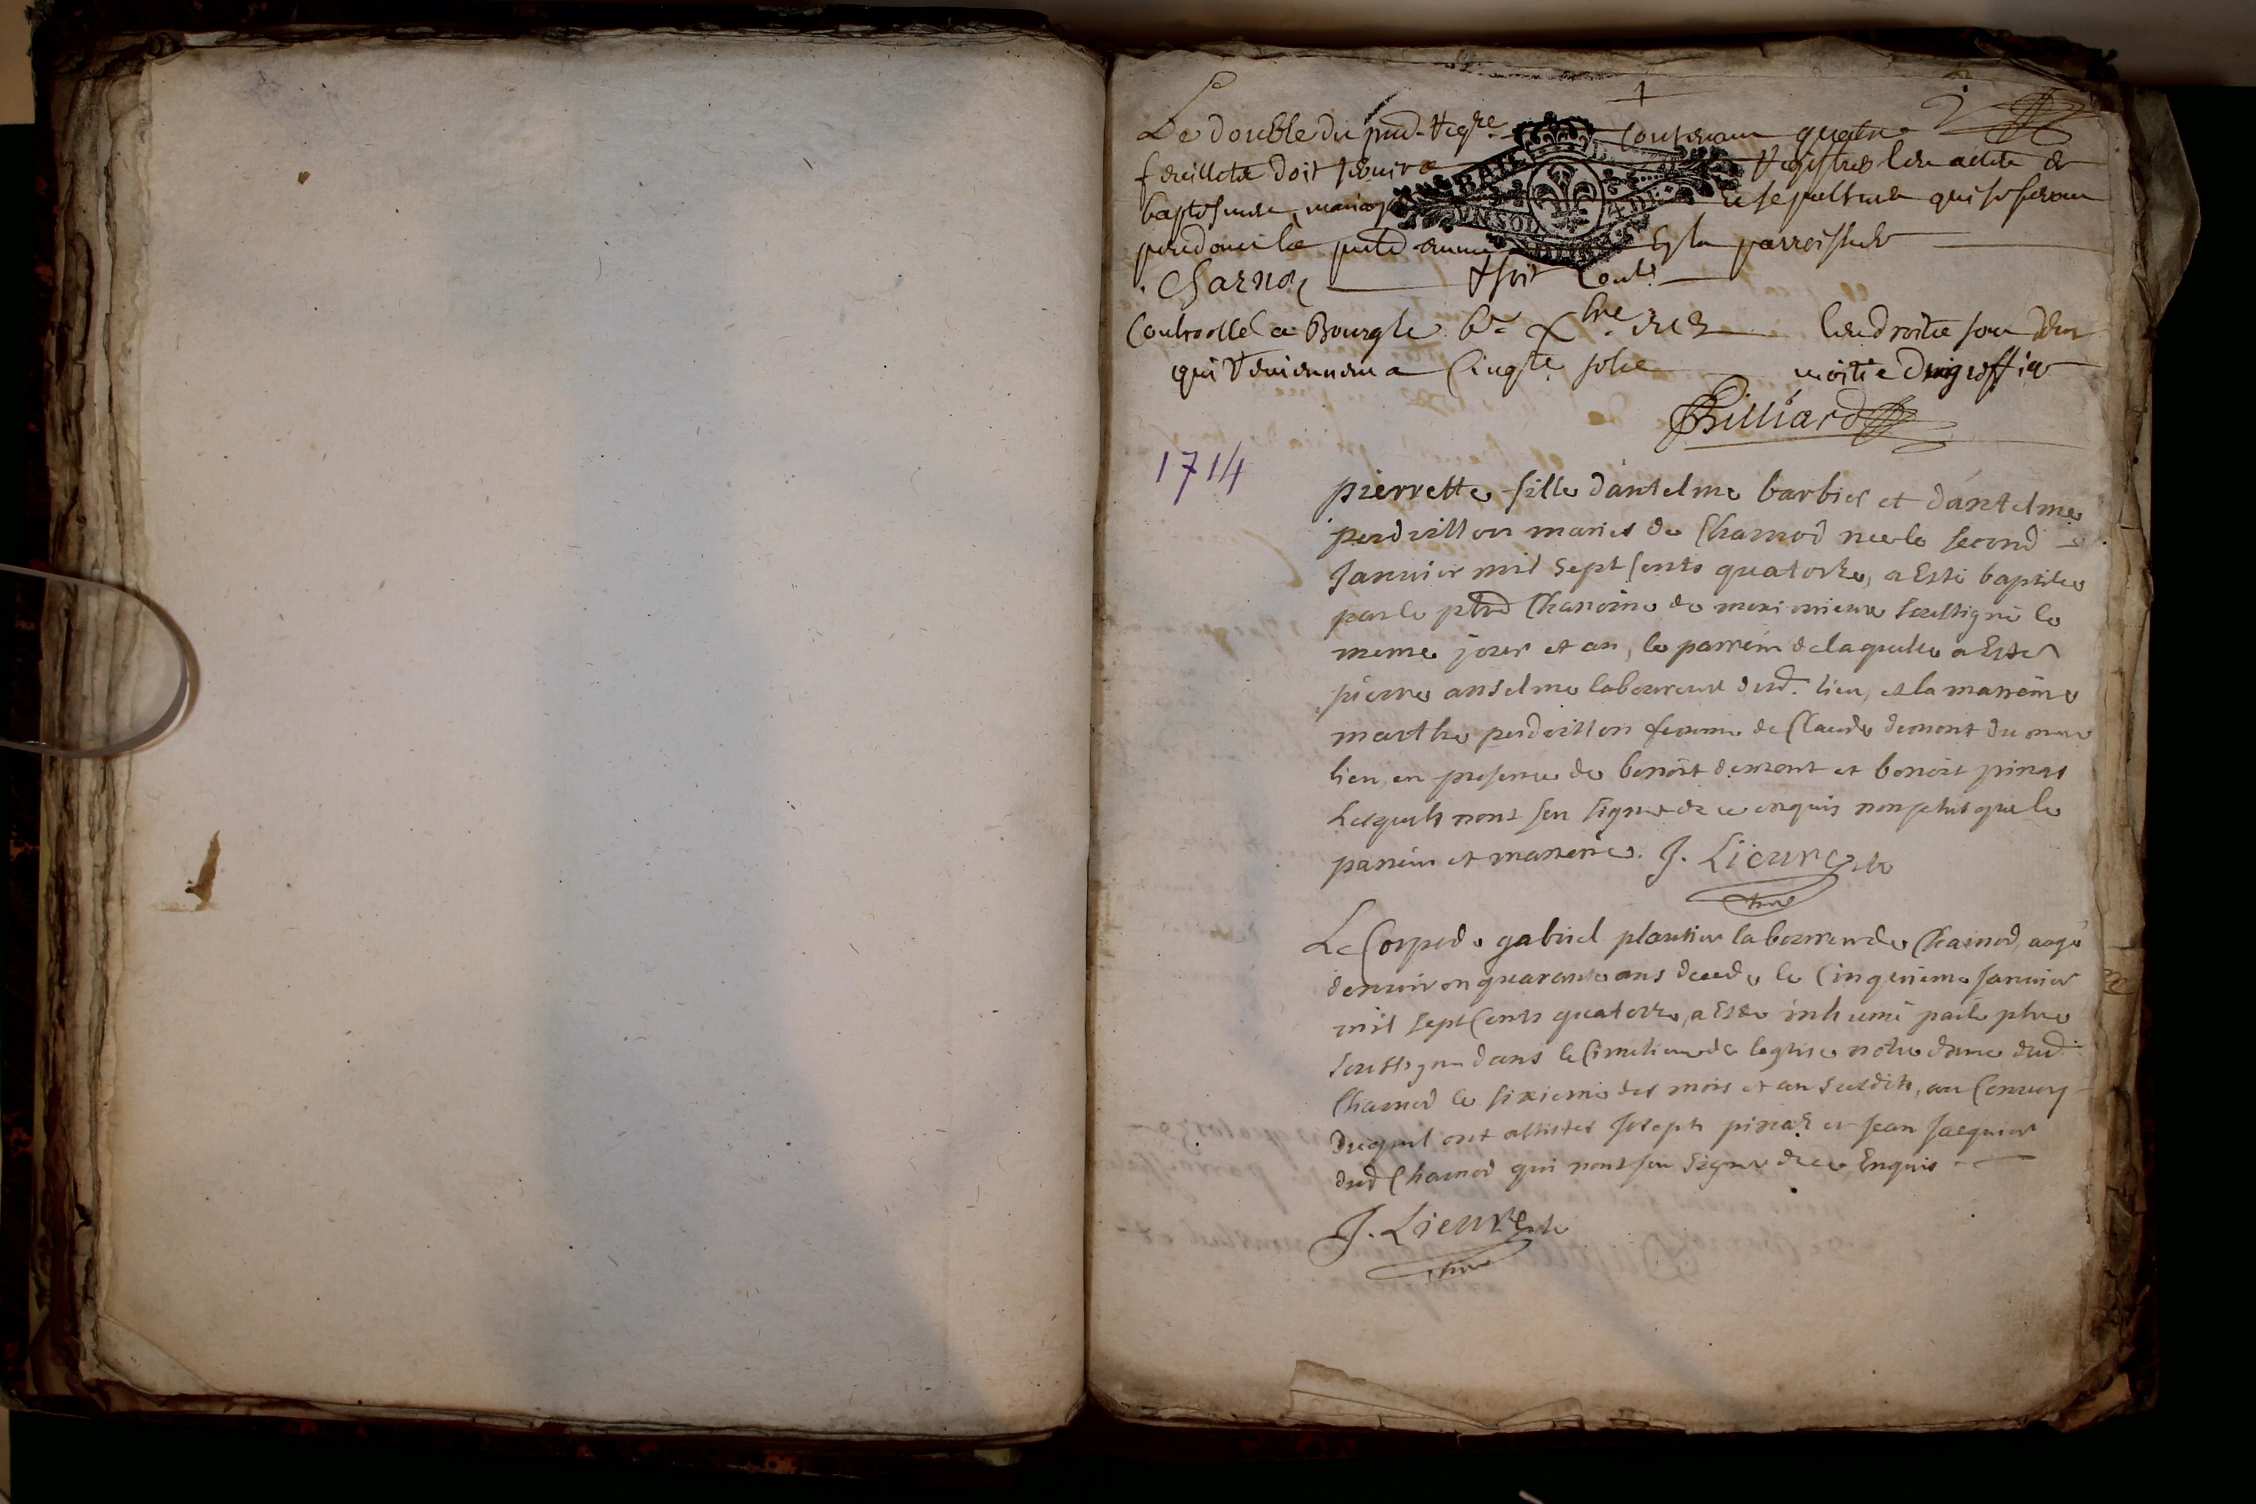 1
Le double du pnt Regre contenant quatre
feuillets doit servir a Registrer les actes de
baptesmes, mariages et sepultures qui se feront
pendant la pnte année En la parroisse de
Charnoz soit Contr
Controollé a Bourg le 6e Xbre les droits sont deus
qui Reviennent a Cinqte sols moitie du greffier
Billiard
1714
pierrette fille dantelme barbier et dantelme
perdrillon mariés de Charnod née le second
Janvier mil sept cents quatorze, a Esté baptisée
par le pbre Chanoine de meximieux soussigné le
meme jour et an, le parrein de laquelle a Esté
pierre anselme laboureur dud. lieu, et la marreine
marthe perdrillon femme de Claude demont du meme
lieu, en presence de benoit demont et benoit pinaz
Lesquels nont sceu signer de ce enquis non plus que le
parrein et marreine. J. Lieure pbre
Le Corps de gabriel plantier laboureur de Charnod, aagé
denviron quarante ans decedé le Cinquieme Janvier
mil sept Cents quatorze, a Esté inhumé par le pbre
soussigné dans le Cimetiere de leglise notre dame dud.
Charnod le sixieme des mois et an susdits, au Convoy
Duquel ont assistés Joseph pinaz et Jean Jacquier
dud Charnod qui nont sceu signer de ce Enquis
J. Lieure pbre